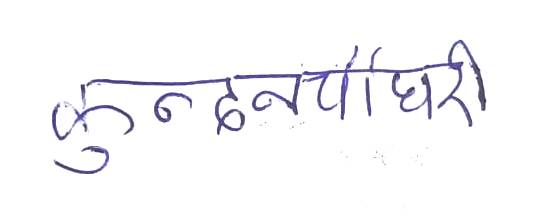 कुन्दन चौधरी